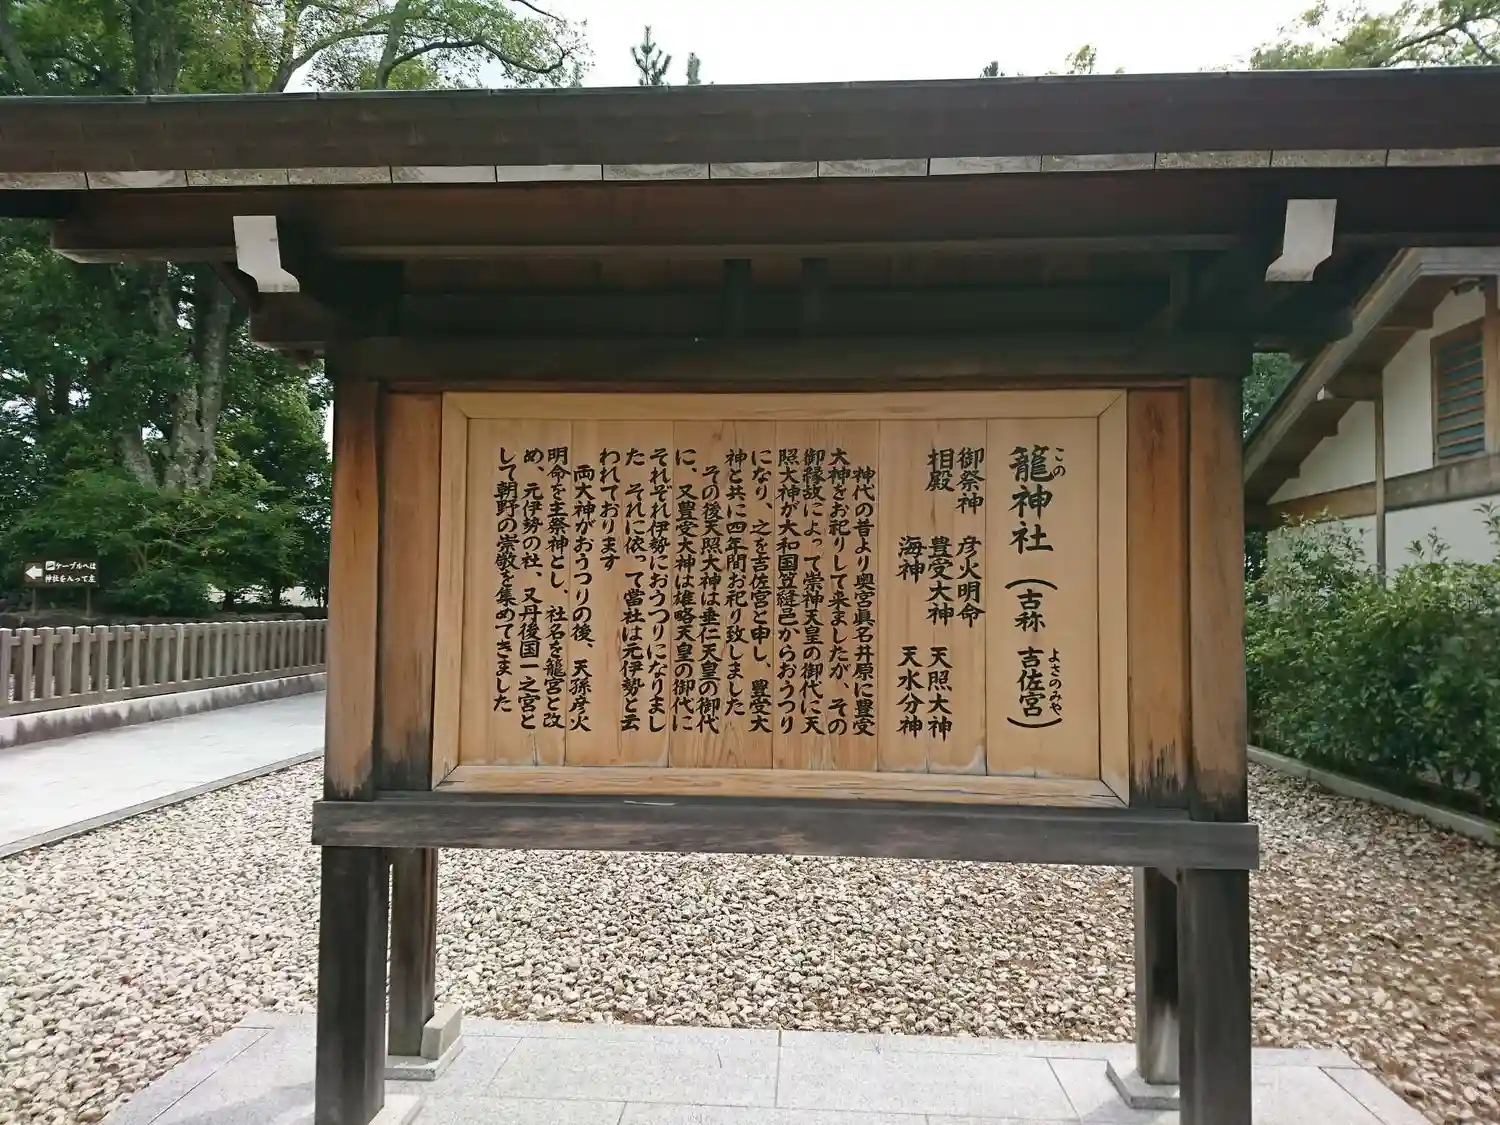 籠神社(古称 吉佐宮)
この
よさのみや
御祭神 彦火明命
相殿 豊受大神 天照大神
海神 天水分神
神代の昔より奥宮眞名井原に豊受
大神をお祀りして来ましたが、その
御縁故によって崇神天皇の御代に天
照大神が大和国笠縫邑からおうつり
になり、之を吉佐宮と申し、豊受大
神と共に四年間お祀り致しました
その後天照大神は垂仁天皇の御代
に、又豊受大神は雄略天皇の御代に
それぞれ伊勢におうつりになりまし
た それに依って當社は元伊勢と云
われております
両大神がおうつりの後、天孫彦火
明命を主祭神とし、社名を籠宮と改
め、元伊勢の社、又丹後国一之宮と
して朝野の崇敬を集めてきました
ケーブルへは
神社を入って左